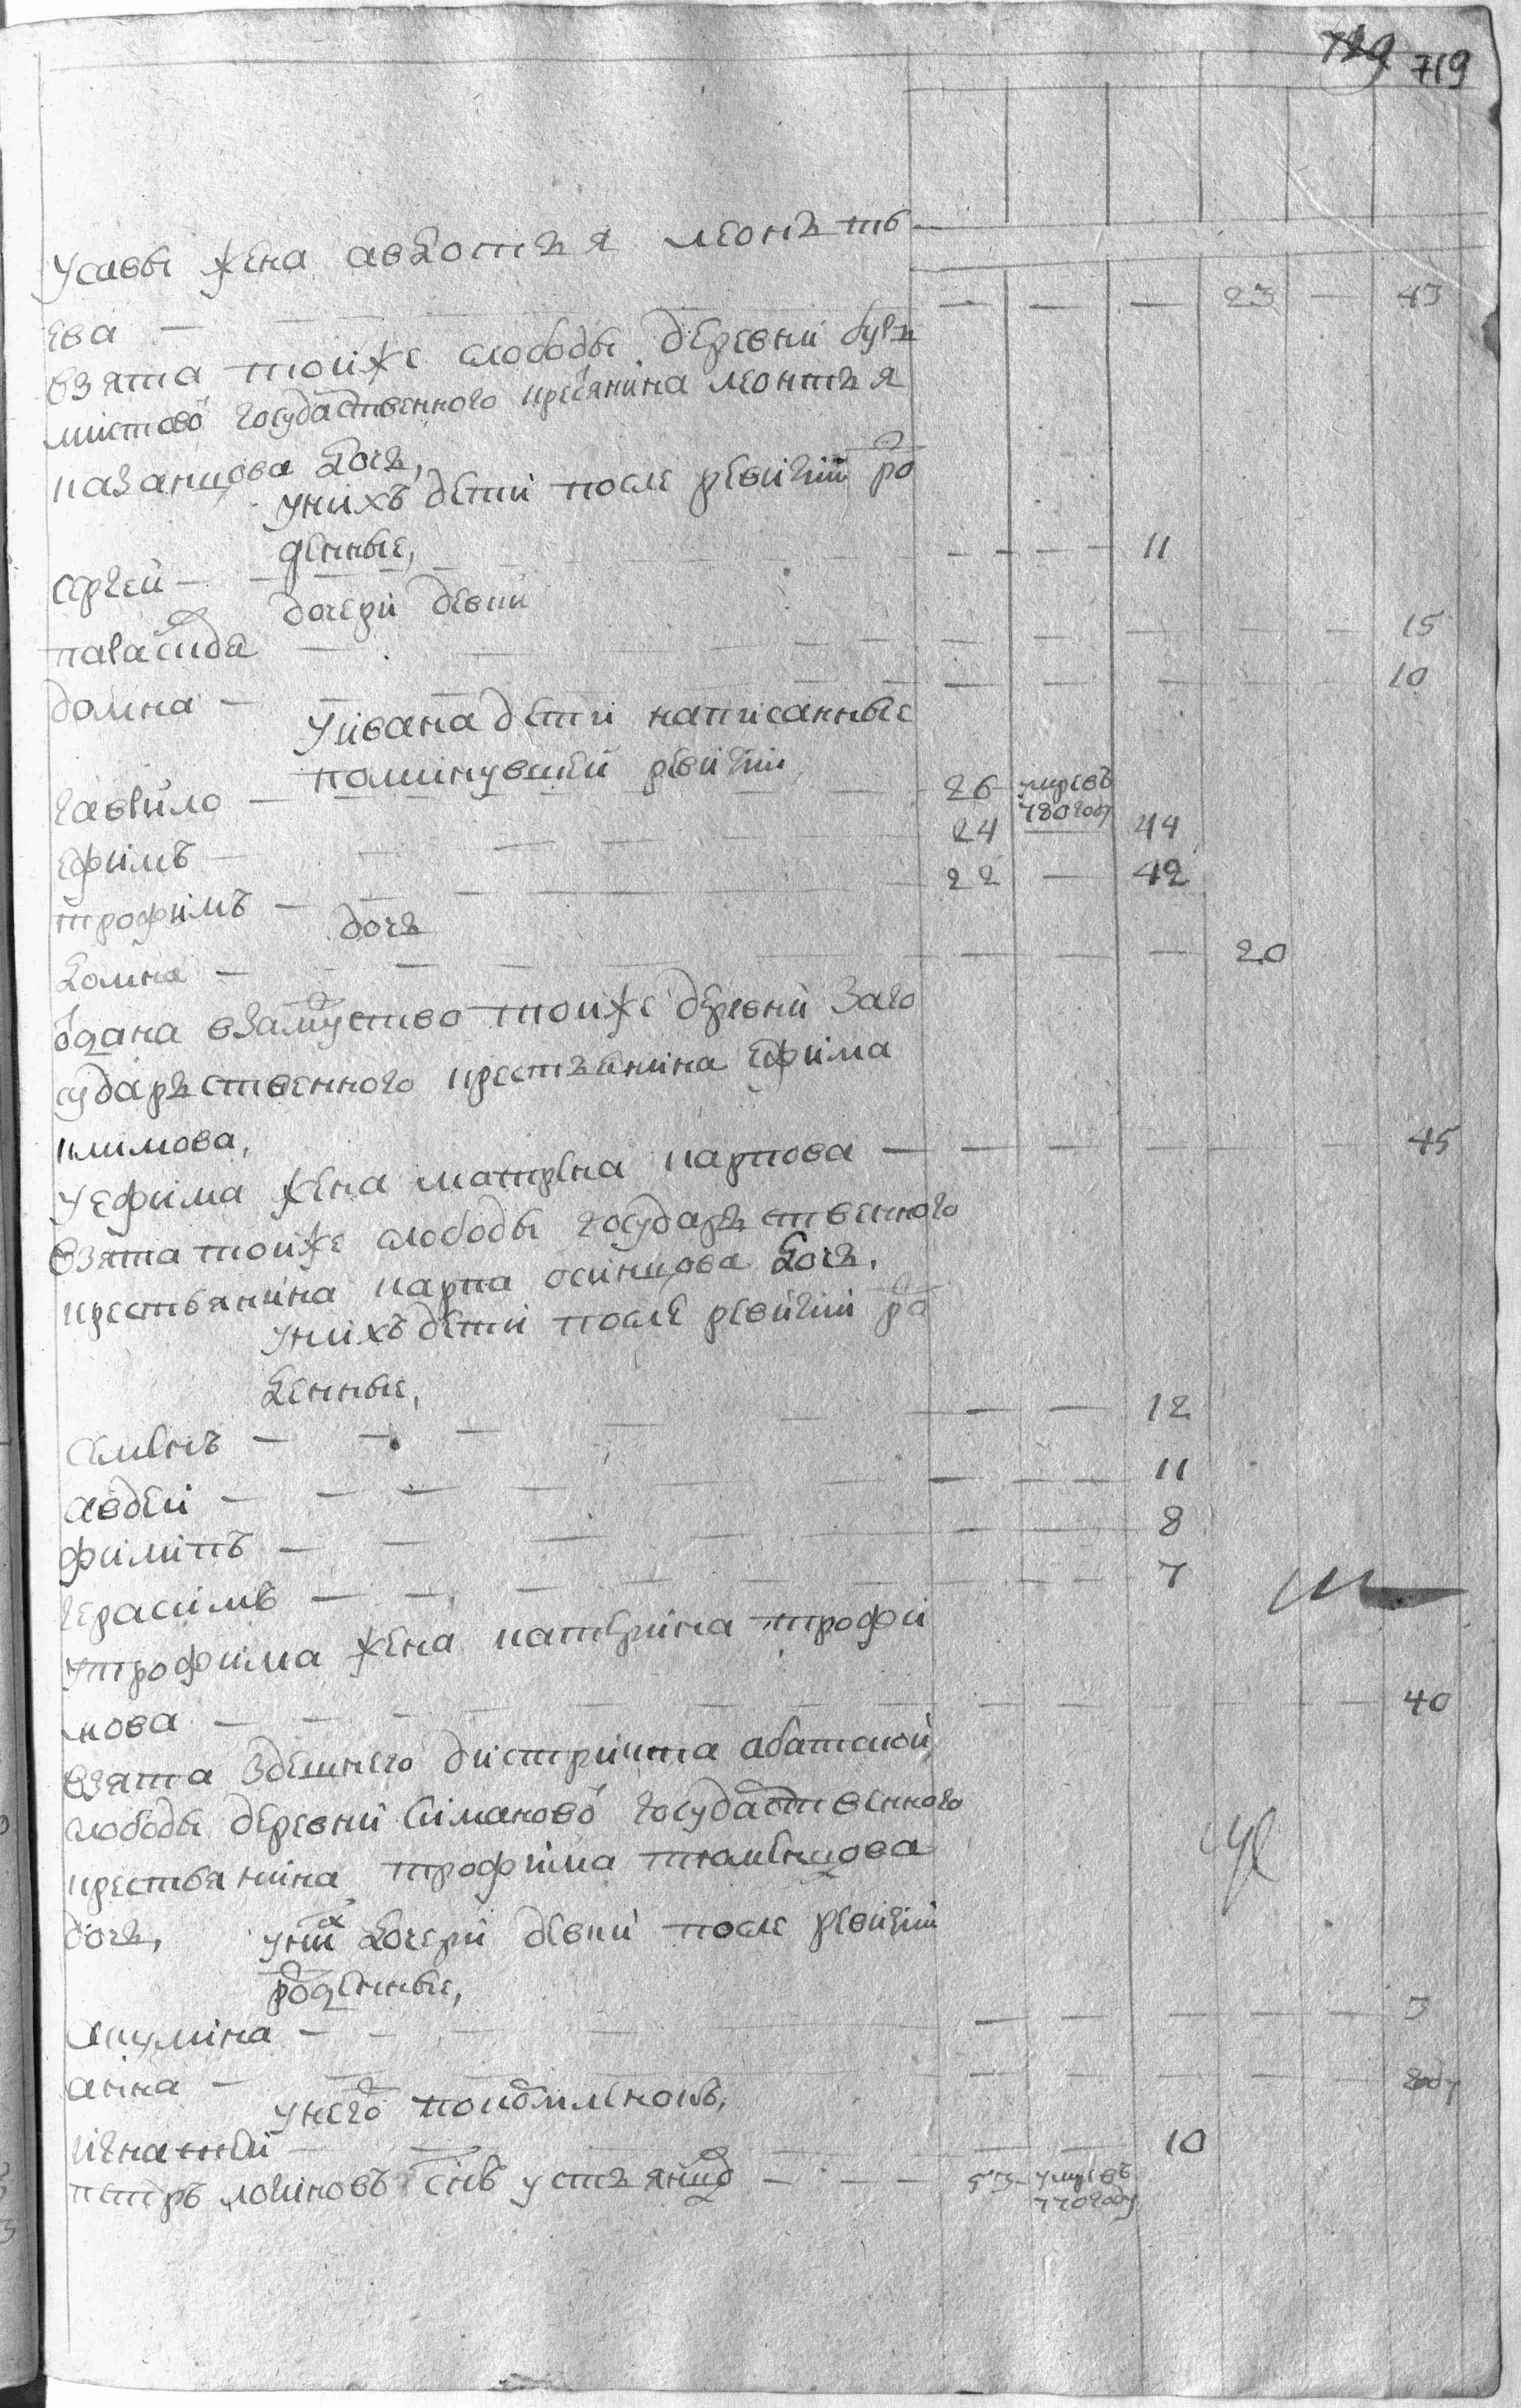 729 719
Усавы жена авдотья леонть
ева — — — — 23 — 43
взята тойже слободы деревни
государственного крестьянина леонтья
казанцова дочь,
Унихъ дети после ревизии ро
жденные,
Сергей — — — — 11
дочери девки
палагида — — — — 15
домна — — — — 10
Уивана дети написанные
поминувшей ревизии
гаврило — — 26 умревъ 780 году
ефимъ — — 24 — 44
трофимъ — — 22 — 42
дочь
домна — — — — 20
одана взамуство тойже деревни заго
сударьственного крестьянина ефима
климова,
Уефима жена матрена карпова — — — 45
взята тойже слободы государьственного
крестьянина карпа осинцова дочь,
Унихъ дети после ревизии ро
жденные,
Семенъ — — — — — 12
авдей — — — — — 11
филипъ — — — — 8
герасимъ — — — — 7
Утрофима жена катерина трофи
мова — — — — 40
взята здешнего дистрикта абатской
слободы деревни Симановой государственного
крестьянина трофима тюменцова
дочь, Уних дочери девки после ревизии
рожденные,
акулина — — — — 3
анна — — — — году
Унего подкидыш
игнатий — — — — 10
петръ логиновъ снъ устьянцов — — — 53 умревъ 770 году